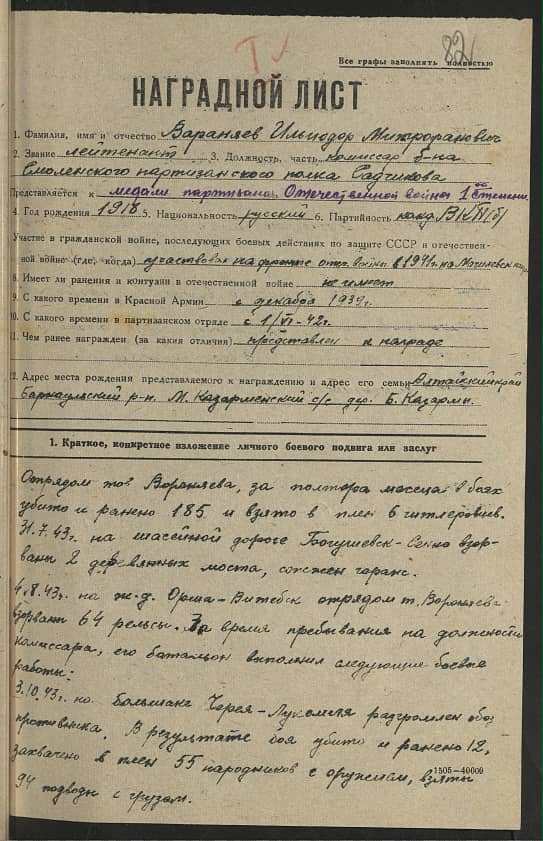 82
Все графы заполнять полностью
НАГРАДНОЙ ЛИСТ
1. Фамилия, имя и отчество Вараняев Илиодор Митрофанович
2. Звание лейтенант 3. Должность, часть комиссар б-на
Смоленского партизанского полка Садчикова
Представляется к медали партизана Отечественной войны 1ой степени
4. Год рождения 1918 5. Национальность русский 6. Партийность канд. ВКП(б)
Участие в гражданской войне, последующих боевых действиях по защите СССР и отечествен-
ной войне (где, когда) участвовал на фронте отеч. войны в 1941г. на
8. Имеет ли ранения и контузии в отечественной войне не имеет
9. С какого времени в Красной Армии с декабря 1939г.
10. С какого времени в партизанском отряде с 1/VI-42г.
11. Чем ранее награжден (за какия отличия) представлен к награде
12. Адрес места рождения представляемого к награждению и адрес его семьи Алтайский край
Барнаульский р-н. М. Казарменский с/с дер. Б. Казармы.
1. Краткое, конкретное изложение личного боевого подвига или заслуг
Отрядом тов Вороняева, за полтора месеца в боях
убито и ранено 185 и взято в плен 6 гитлеровцев.
31.7.43г. на шасейной дороге Богушевск-Сенно взор-
ваны 2 деревянных моста, сожжен гараж.
4.8.43г. на ж.д. Орша-Витебск отрядом т. Вороняева
взорваны 64 рельсы. За время пребывания на должности
комиссара, его батальон выполнил следующие боевые
работы:
3.10.43г. на большаке Черея-Лукомля разгромлен обоз
противника. В результате боя убито и ранено 12,
захвачено в плен 55 народников с оружием, взяты
94 подводы с грузом.
1505—40000